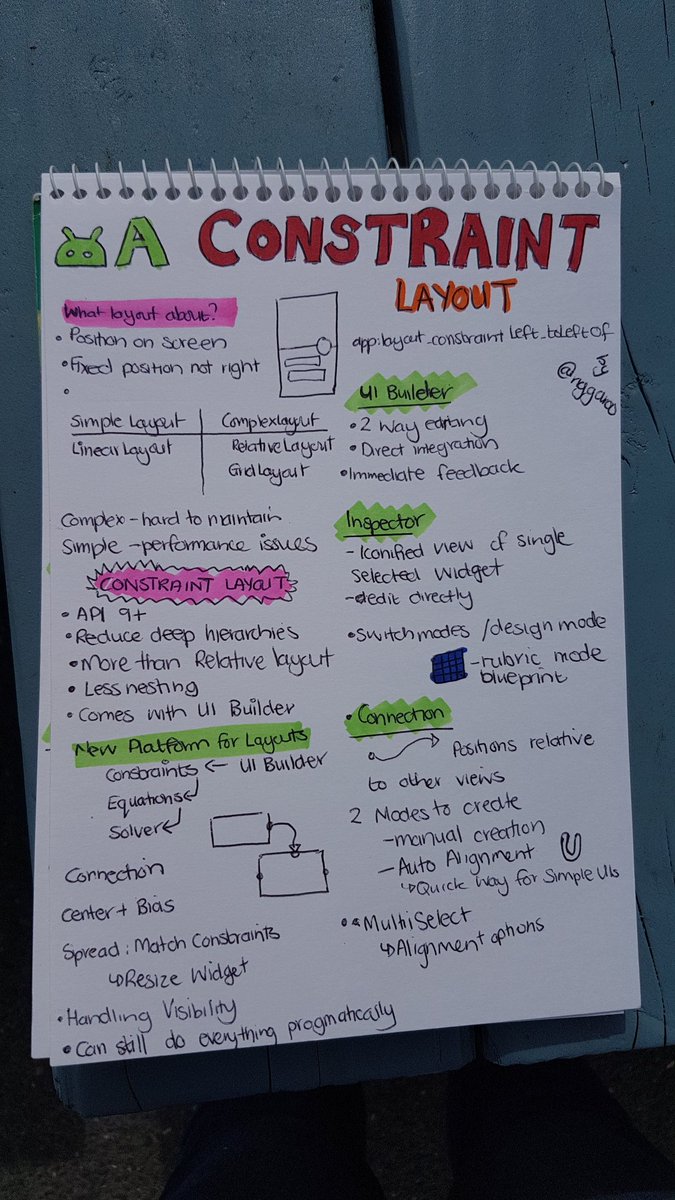 A CONSTRAINT
LAYOUT
What layout about?
• Position on screen
• Fixed position not right
•
Simple Layout
Complex layout
Linear Layout
Relative Layout
Grid Layout
Complex - hard to maintain
Simple - performance issues
CONSTRAINT LAYOUT
• API 9+
• Reduce deep hierarchies
• More than Relative layout
• Less nesting
• Comes with UI Builder
New Platform for Layouts
Constraints ← UI Builder
Equations
Solver
Connection
Center + Bias
Spread: Match Constraints
↳ Resize Widget
• Handling Visibility
• Can still do everything pragmatically
app:layout_constraint Left_toLeftOf
@riggaroo
UI Builder
• 2 Way editing
• Direct integration
• Immediate feedback
Inspector
- Iconified view of single
selected widget
- edit directly
• Switch modes / design mode
- rubric mode
blueprint
• Connection
Positions relative
to other views
2 Modes to create
- manual creation
- Auto Alignment
↳ Quick way for simple UIs
• MultiSelect
↳ Alignment options